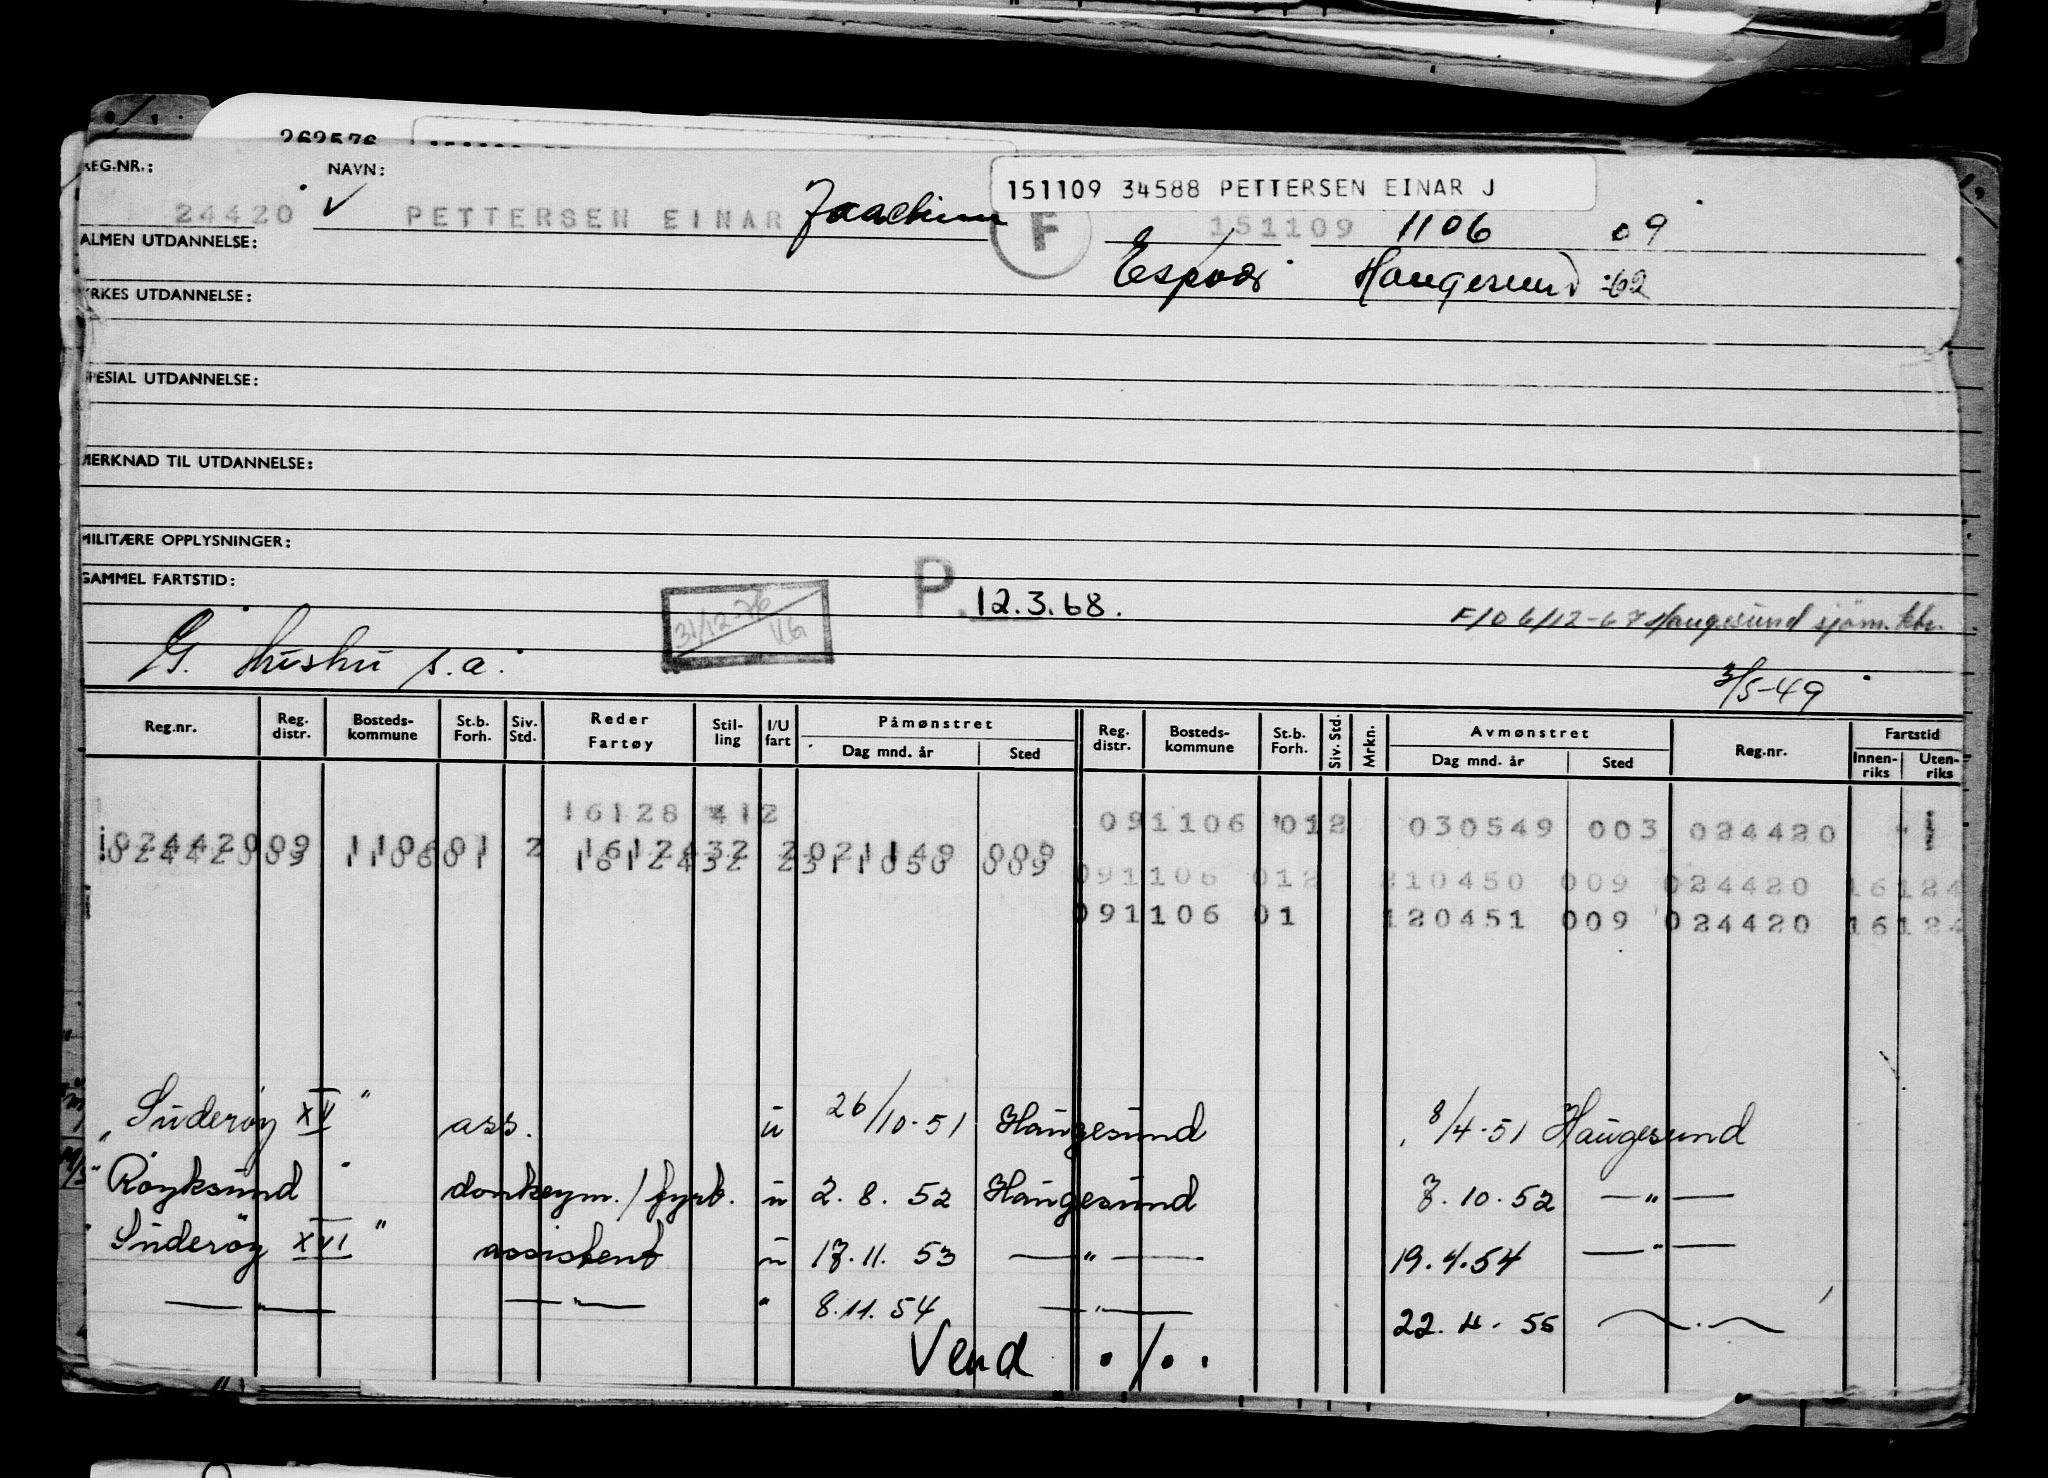 262576
REG.NR.: NAVN: 151109 34588 PETTERSEN EINAR J
24420 ✓ PETTERSEN EINAR Joachim F 151109 1106 09
ALMEN UTDANNELSE: Espvær Haugesund -62
YRKES UTDANNELSE:
SPESIAL UTDANNELSE:
MERKNAD TIL UTDANNELSE:
MILITÆRE OPPLYSNINGER:
GAMMEL FARTSTID:
P. 12.3.68.
31/12-76
F/O 6/12-67 Haugesund sjøm.ktr.
G. hushu s.a.
3/5-49
Reg.nr. Reg. distr. Bosteds-kommune St.b. Forh. Siv. Std. Reder Fartøy Stil-ling I/U fart Påmønstret Dag mnd. år Sted Reg. distr. Bosteds-kommune St.b. Forh. Siv. Std. Mrkn. Avmønstret Dag mnd. år Sted Reg.nr. Fartstid Innen-riks Uten-riks
16128 412 091106 012 030549 003 024420 1
102442009 110601 2 1612432 2021149 009
102442009 110601 1612432 2311050 009
091106 012 210450 009 024420 16124
091106 01 120451 009 024420 16124
"Suderøy XV" ass. u 26/10-51 Haugesund 8/4-51 Haugesund
"Røyksund" donkeym./fyrb. u 2.8.52 Haugesund 7.10.52 —"—
"Suderøy XVI" assistent u 17.11.53 —"— 19.4.54 —"—
—"— —"— " 8.11.54 —"— 22.4.55 —"—
Vend ./..